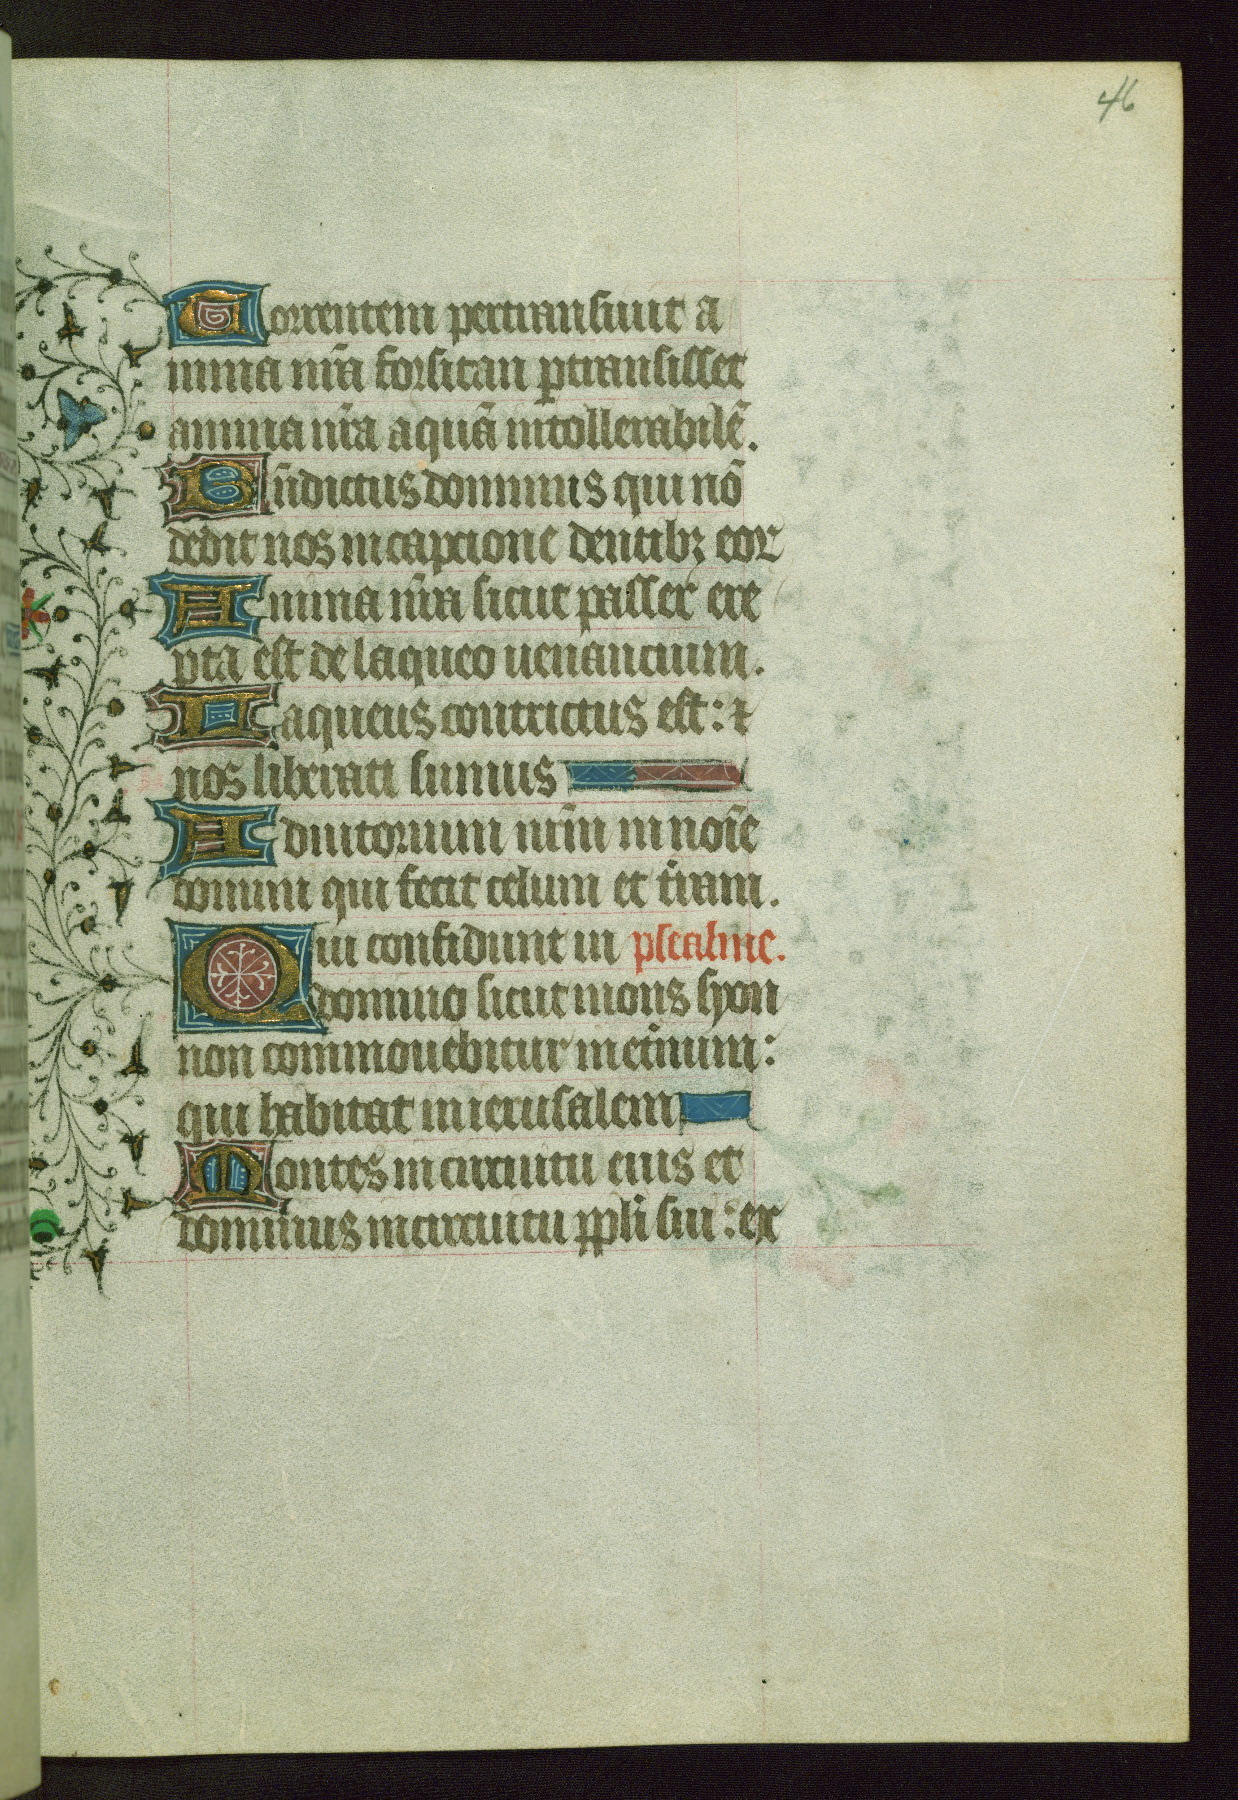 46
Torrentem pertransiuit a
nima nr̄a forsitan ꝑtransisset
anima nr̄a aquā intollerabilē.
Bn̄dictus dominus qui nō
dedit nos in captione dentibꝫ eoꝝ
Anima nr̄a sicut passer ere
pta est de laqueo uenancium.
Laqueus contrictus est: ⁊
nos liberati sumus
Adiutorium nr̄m in noīe
domini qui fecit celum et t̉ram.
Qui confidunt in psealme.
domino sicut mons syon
non commouebitur in et̉num:
qui habitat in ierusalem
Montes in circuitu eius et
dominus in circuitu ppl̄i sui: ex